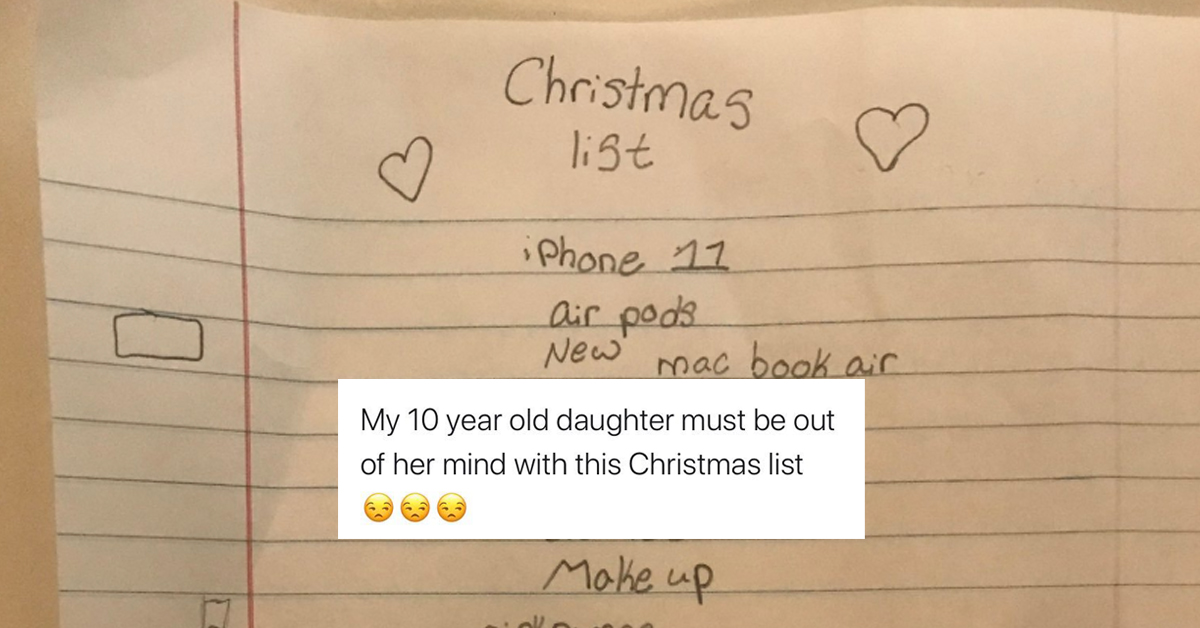 Christmas
list
iPhone 11
air pods
New mac book air
My 10 year old daughter must be out
of her mind with this Christmas list
😒😒😒
Make up